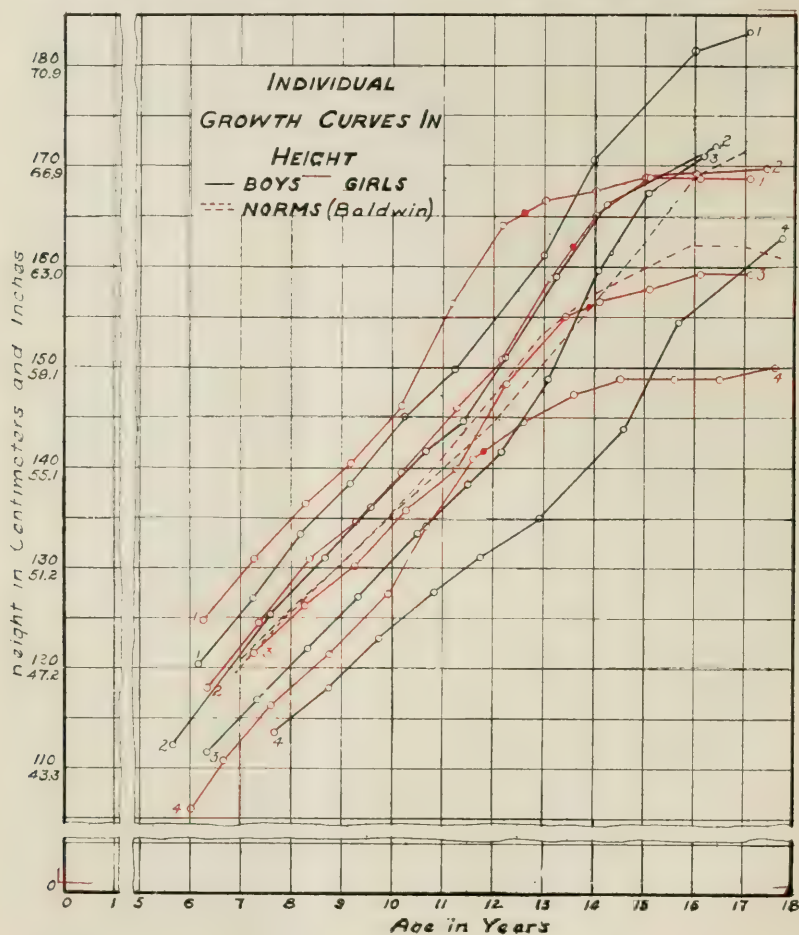 INDIVIDUAL
GROWTH CURVES IN
HEIGHT
BOYS GIRLS
NORMS (Baldwin)
Height in Centimeters and Inches
180
70.9
170
66.9
160
63.0
150
59.1
140
55.1
130
51.2
120
47.2
110
43.3
0
1
2
3
2
1
4
3
4
1
1
2
2
3
3
4
4
0 1 5 6 7 8 9 10 11 12 13 14 15 16 17 18
Age in Years